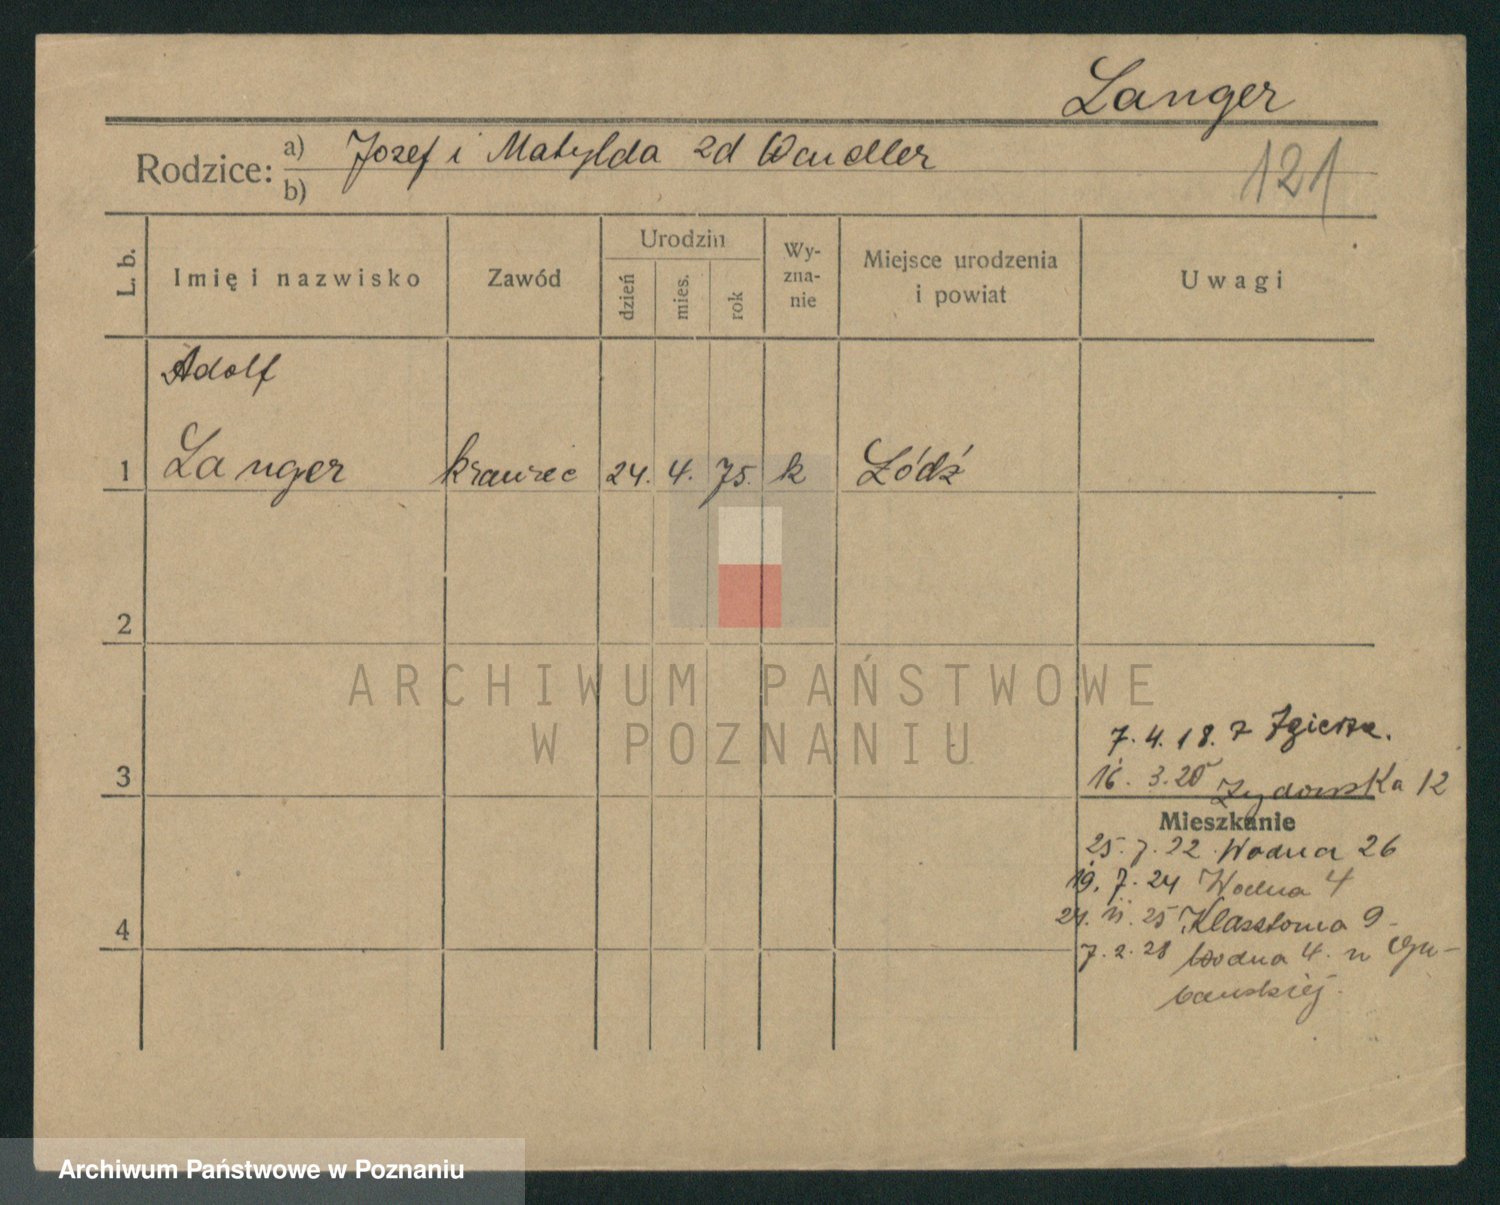 Langer
Rodzice: a) Jozef i Matylda zd Wandler
b)
121
L. b. Imię i nazwisko Zawód Urodzin dzień mies. rok Wy-zna-nie Miejsce urodzenia i powiat Uwagi
Adolf
1 Langer krawiec 24. 4. 75. k Łódź
2
ARCHIWUM PAŃSTWOWE
W POZNANIU
7. 4. 18. z Zgierza.
3 16. 3. 20 Zydowska 12
Mieszkanie
25. 7. 22 Wodna 26
19. 7. 24 Wodna 4
4 24. 11. 25 Klasztorna 9
7. 2. 28 Wodna 4. u
Archiwum Państwowe w Poznaniu